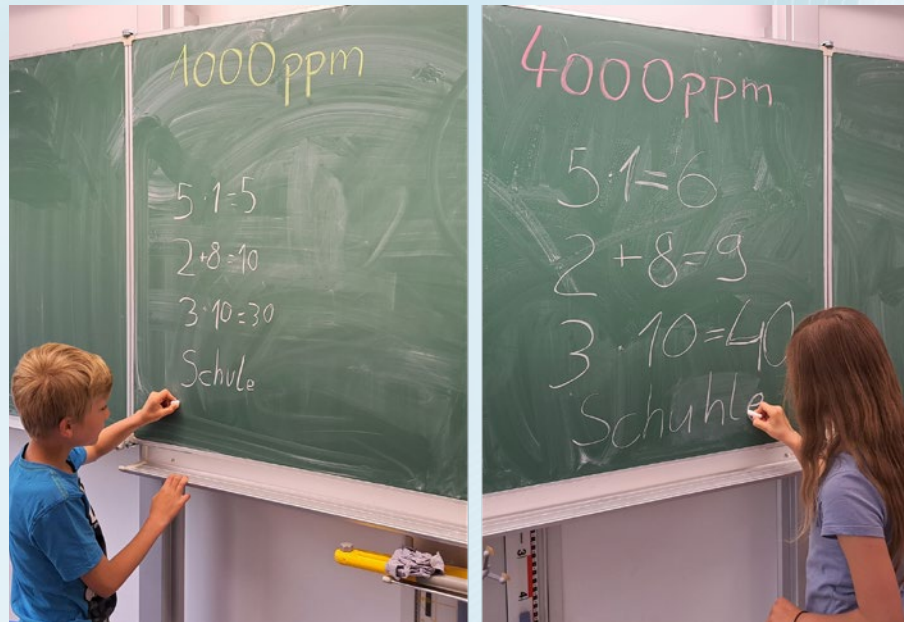 1000ppm
5·1=5
2+8=10
3·10=30
Schule
4000ppm
5·1=6
2+8=9
3·10=40
Schuhle